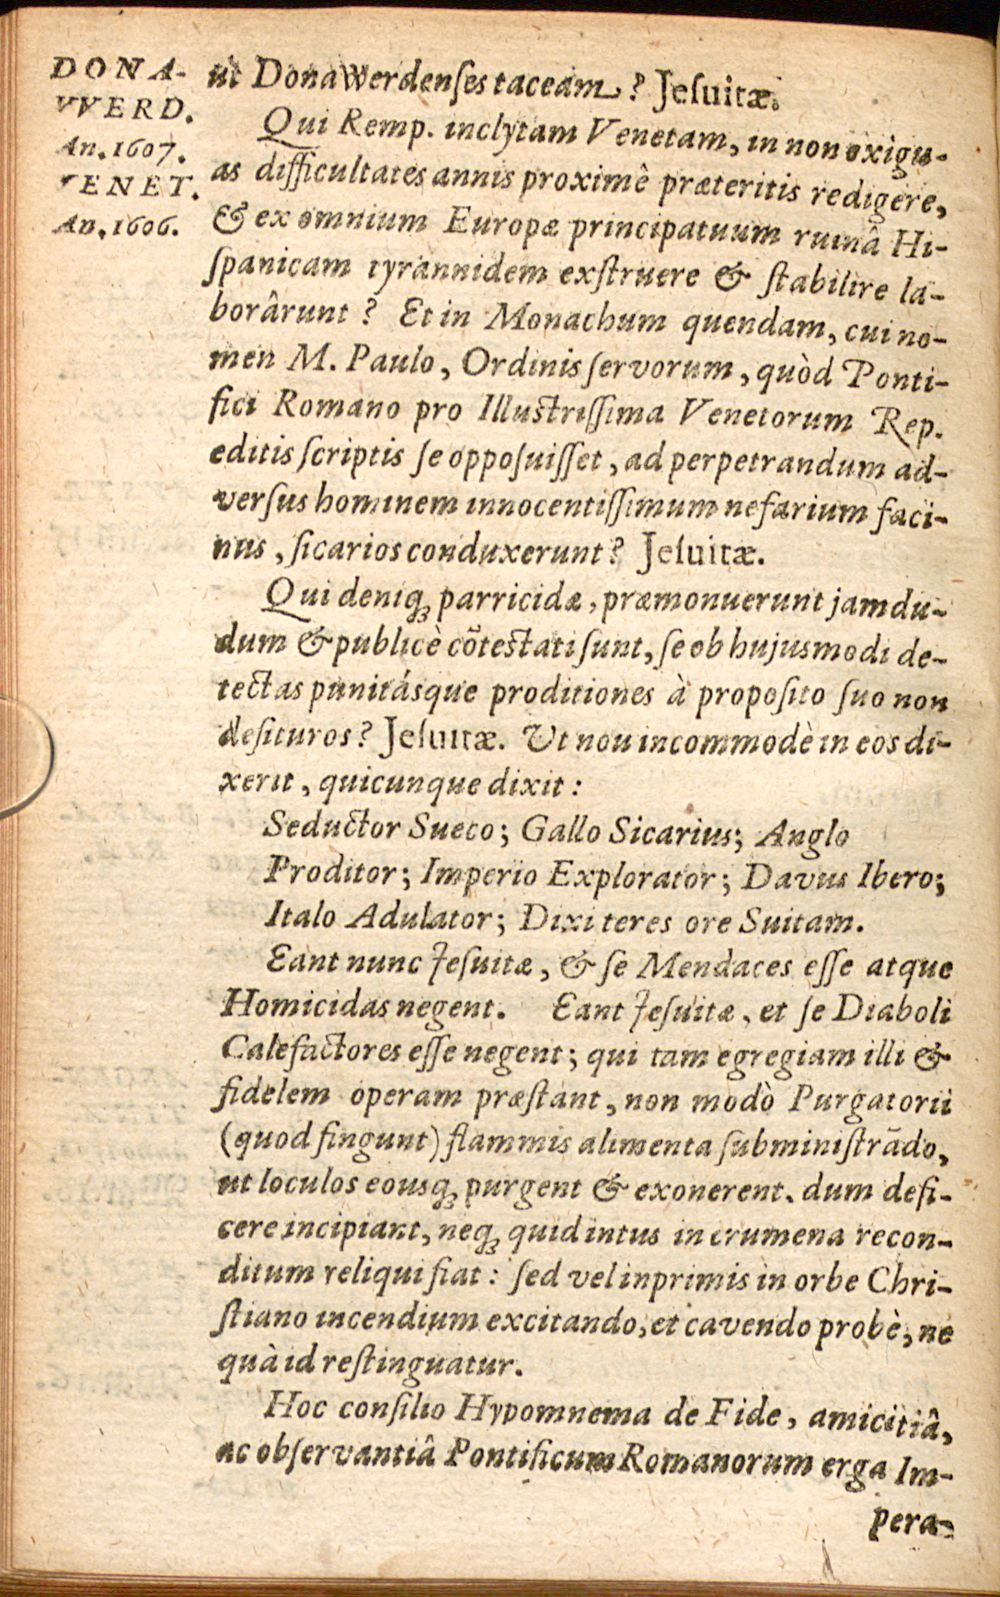 DONA-
VVERD.
An. 1607.
VENET.
An. 1606.
ut Donawerdenſes taceam? Jeſuitæ.
Qui Remp. inclytam Venetam, in non exigu-
as difficultates annis proximê præteritis redigere,
& ex omnium Europæ principatuum ruinâ Hi-
ſpanicam tyrannidem exſtruere & ſtabilire la-
borârunt? Et in Monachum quendam, cui no-
men M. Paulo, Ordinis ſervorum, quòd Ponti-
fici Romano pro Illuſtriſſima Venetorum Rep.
editis ſcriptis ſe oppoſuiſſet, ad perpetrandum ad-
verſus hominem innocentiſſimum nefarium faci-
nus, ſicarios conduxerunt? Jeſuitæ.
Qui deniq; parricidæ, præmonuerunt jamdu-
dum & publicè cõteſtati ſunt, ſe ob hujusmodi de-
tectas punitásque proditiones à propoſito ſuo non
deſituros? Jeſuitæ. Ut non incommodè in eos di-
xerit, quicunque dixit:
Seductor Sueco; Gallo Sicarius; Anglo
Proditor; Imperio Explorator; Davus Ibero;
Italo Adulator; Dixi teres ore Suitam.
Eant nunc Jeſuitæ, & ſe Mendaces eſſe atque
Homicidas negent. Eant Jeſuitæ, et ſe Diaboli
Calefactores eſſe negent; qui tam egregiam illi &
fidelem operam præſtant, non modò Purgatorii
(quod fingunt) flammis alimenta ſubminiſtrādo,
ut loculos eousq; purgent & exonerent, dum defi-
cere incipiant, neq; quid intus in crumena recon-
ditum reliqui fiat: ſed vel inprimis in orbe Chri-
ſtiano incendium excitando, et cavendo probè, ne
quà id reſtinguatur.
Hoc conſilio Hypomnema de Fide, amicitiâ,
ac obſervantiâ Pontificum Romanorum erga Im-
pera-